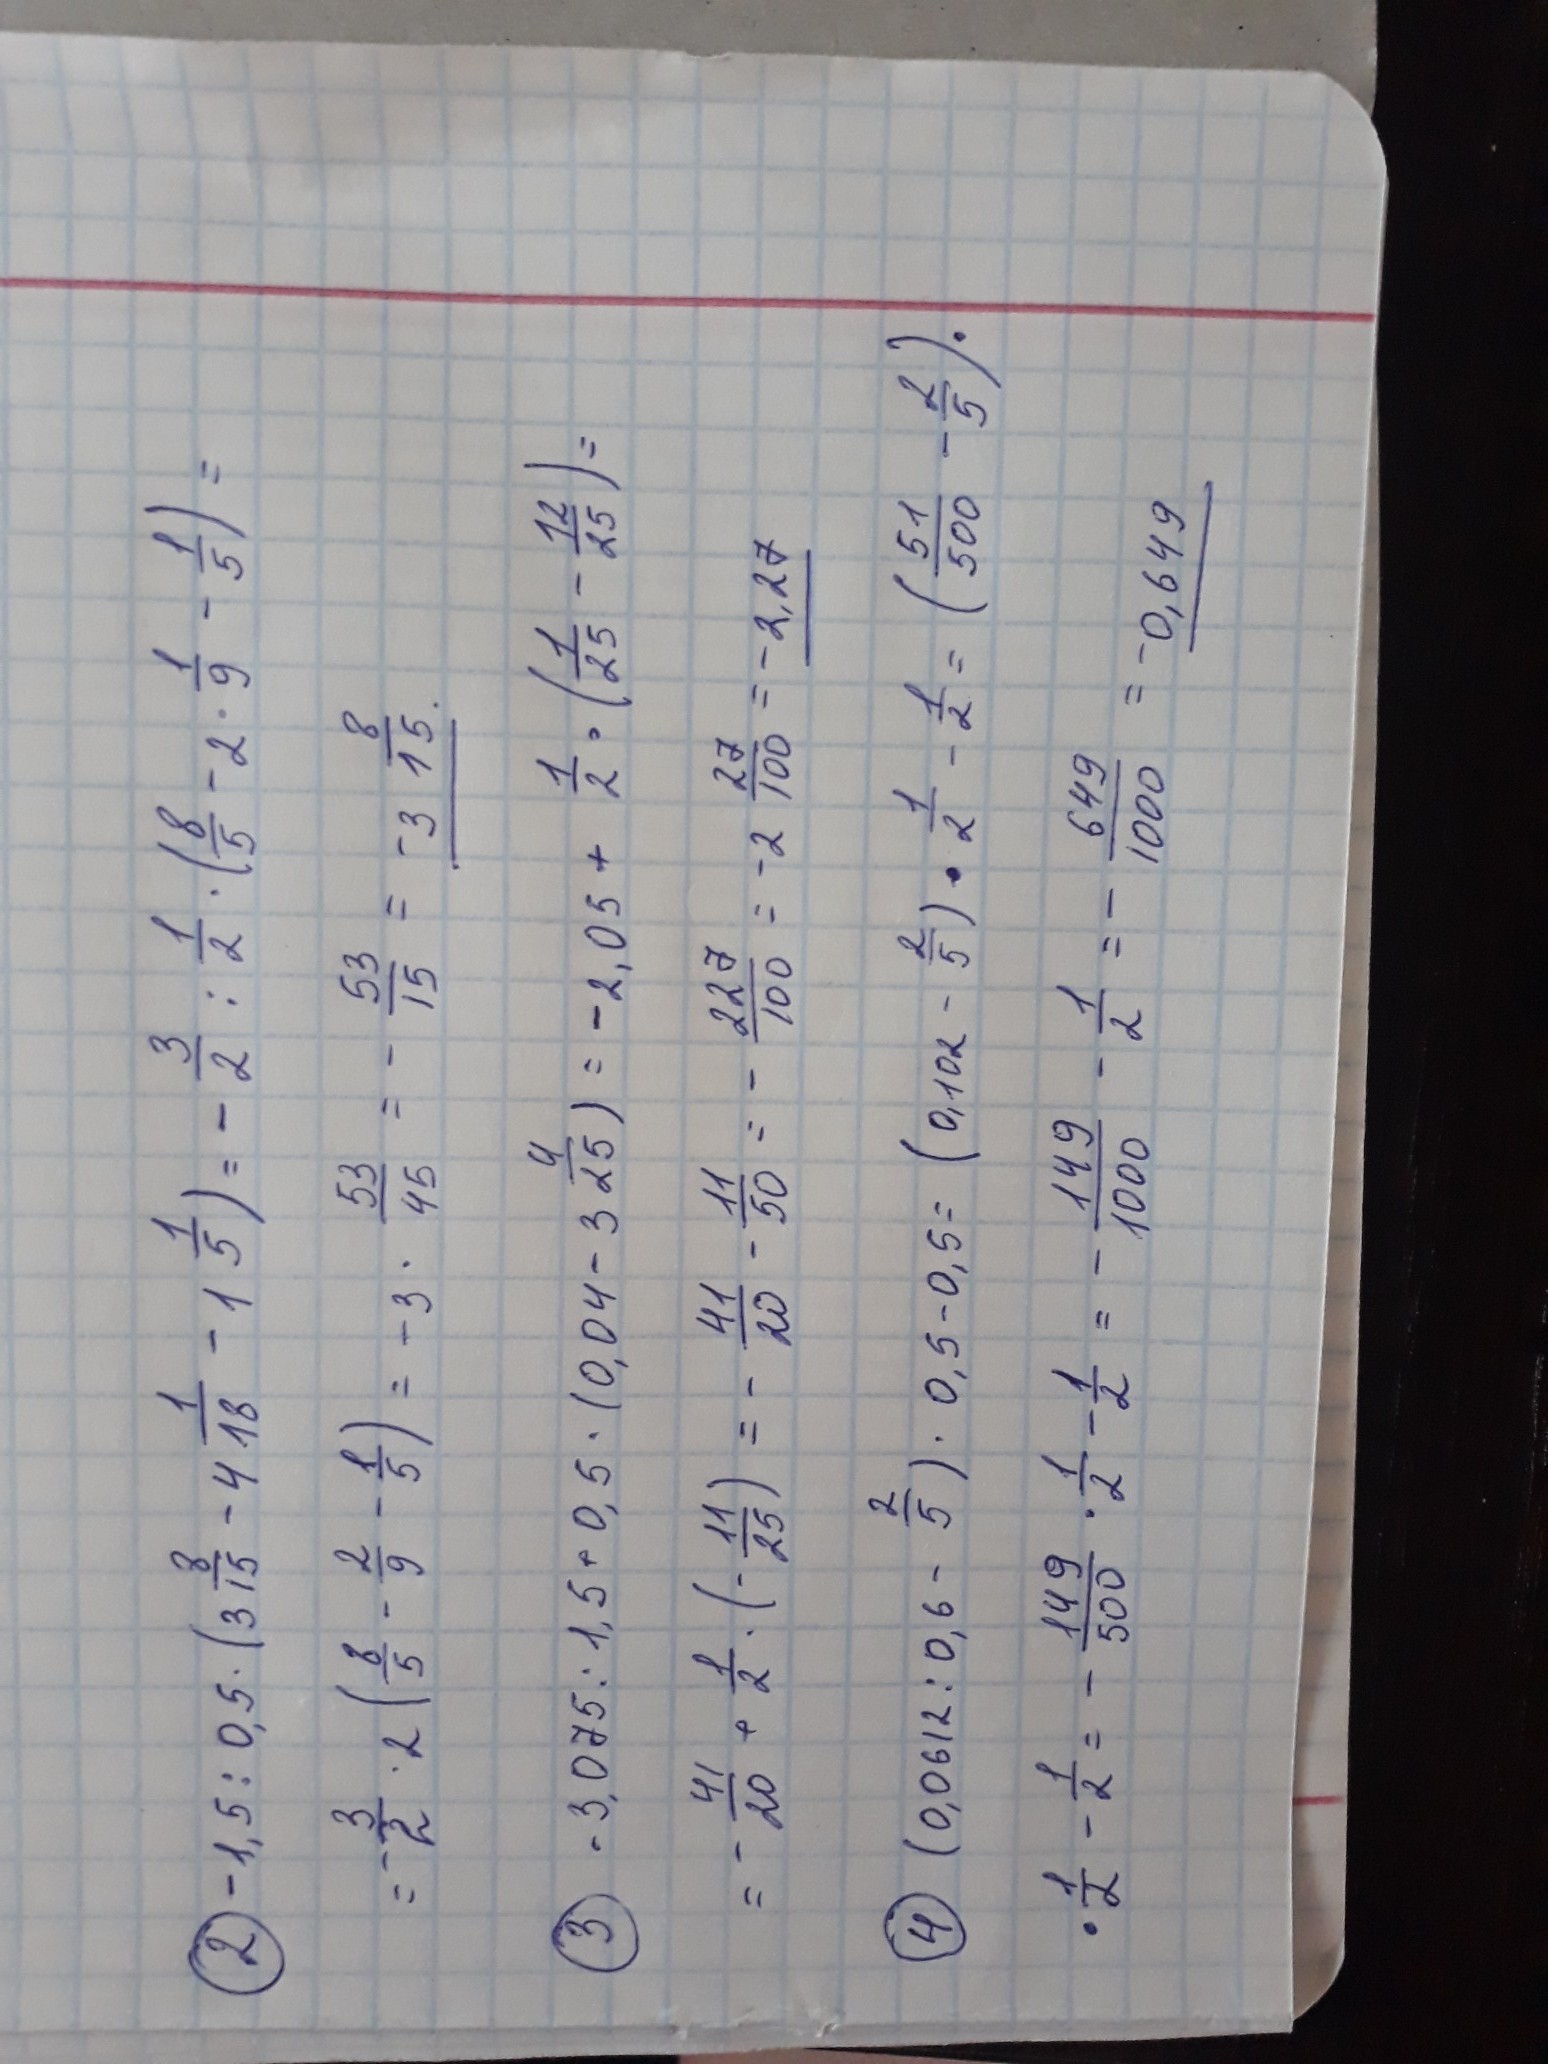 ② -1,5 : 0,5 · (3 8/15 - 4 1/18 - 1 1/5) = - 3/2 : 1/2 · (8/5 - 2 · 1/9 - 1/5) =
= - 3/2 · 2 (8/5 - 2/9 - 1/5) = -3 · 53/45 = - 53/15 = -3 8/15.
③ -3,075 : 1,5 + 0,5 · (0,04 - 3 4/25) = -2,05 + 1/2 · (1/25 - 12/25) =
= - 41/20 + 1/2 · (- 11/25) = - 41/20 - 11/50 = - 227/100 = -2 27/100 = -2,27
④ (0,0612 : 0,6 - 2/5) · 0,5 - 0,5 = (0,102 - 2/5) · 1/2 - 1/2 = (51/500 - 2/5) ·
· 1/2 - 1/2 = - 149/500 · 1/2 - 1/2 = - 149/1000 - 1/2 = - 649/1000 = -0,649